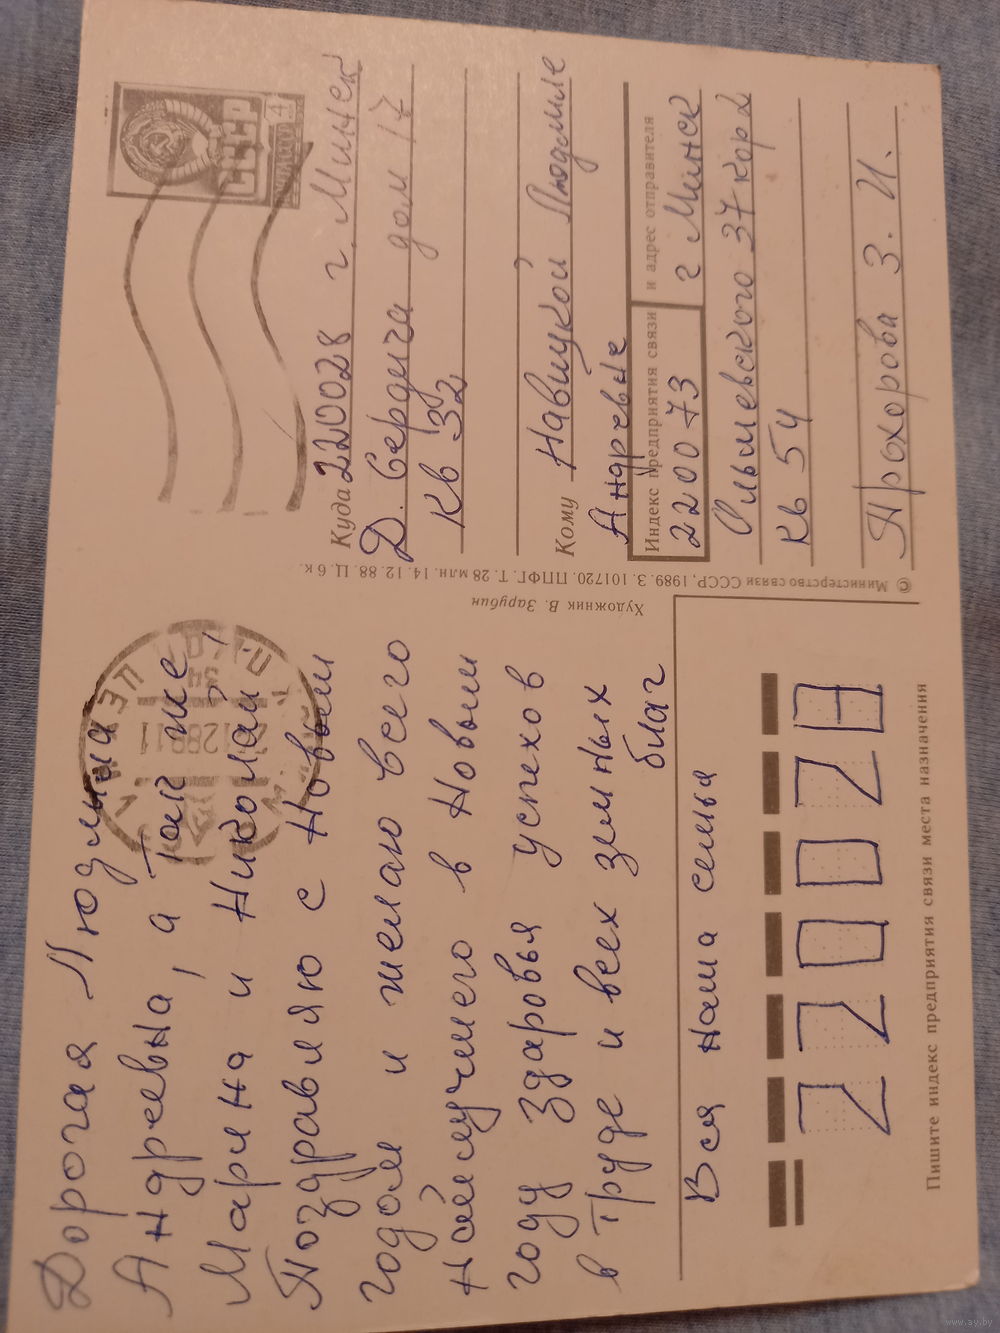 Дорогая Людмила
Андреевна, а так же,
Марина и Николай,
Поздравляю с Новым
годом и желаю всего
наилучшего в Новым
году здаровья успехов
в труде и всех земных
благ
Вся наша семья
220028
Пишите индекс предприятия связи места назначения
Художник В. Зарубин
© Министерство связи СССР, 1989. З. 101720. ППФГ. Т. 28 млн. 14. 12. 88. Ц. 6 к.
СССР
ПОЧТА 4
Куда 220028 г. Минск
Д. Сердича дом 17
Кв 32
Кому Навицкой Людмиле
Андревне
Индекс предприятия связи и адрес отправителя
220073 г Минск
Ольшевского 37 кор 2
кв 54
Прохорова З. И.
www.ay.by